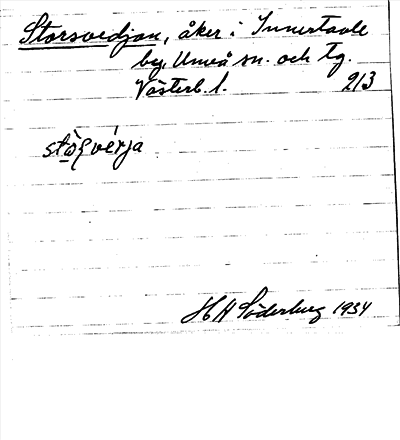 Storsvedjan, åker i Innertavle
by, Umeå sn. och tg.
Västerb. l. 213
H H Söderburg 1934